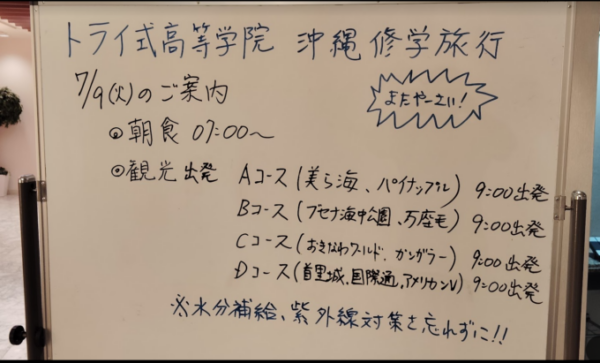 トライ式高等学院 沖縄 修学旅行
7/9(火)のご案内
またやーさい!
◎朝食 07:00~
◎観光出発 Aコース(美ら海、パイナップル) 9:00出発
Bコース(ブセナ海中公園、万座毛) 9:00出発
Cコース(おきなわワールド、ガンガラー) 9:00出発
Dコース(首里城、国際通、アメリカンV) 9:00出発
※水分補給、紫外線対策を忘れずに!!